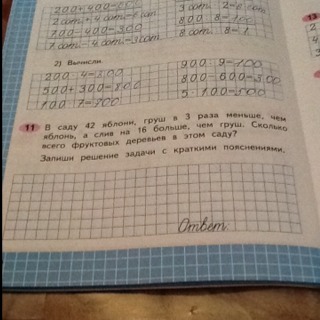 200+400=600 3 сот. 2=6 сот.
2 сот.+4 сот.=6 сот. 800 8=100
700-400=300 8 сот. 8=1
7 сот.-4 сот.=3 сот.
2) Вычисли.
200 4=800 900 9=100
500+300=800 800-600=200
100 7=700 5 100=500
11 В саду 42 яблони, груш в 3 раза меньше, чем
яблонь, а слив на 16 больше, чем груш. Сколько
всего фруктовых деревьев в этом саду?
Запиши решение задачи с краткими пояснениями.
Ответ:
13